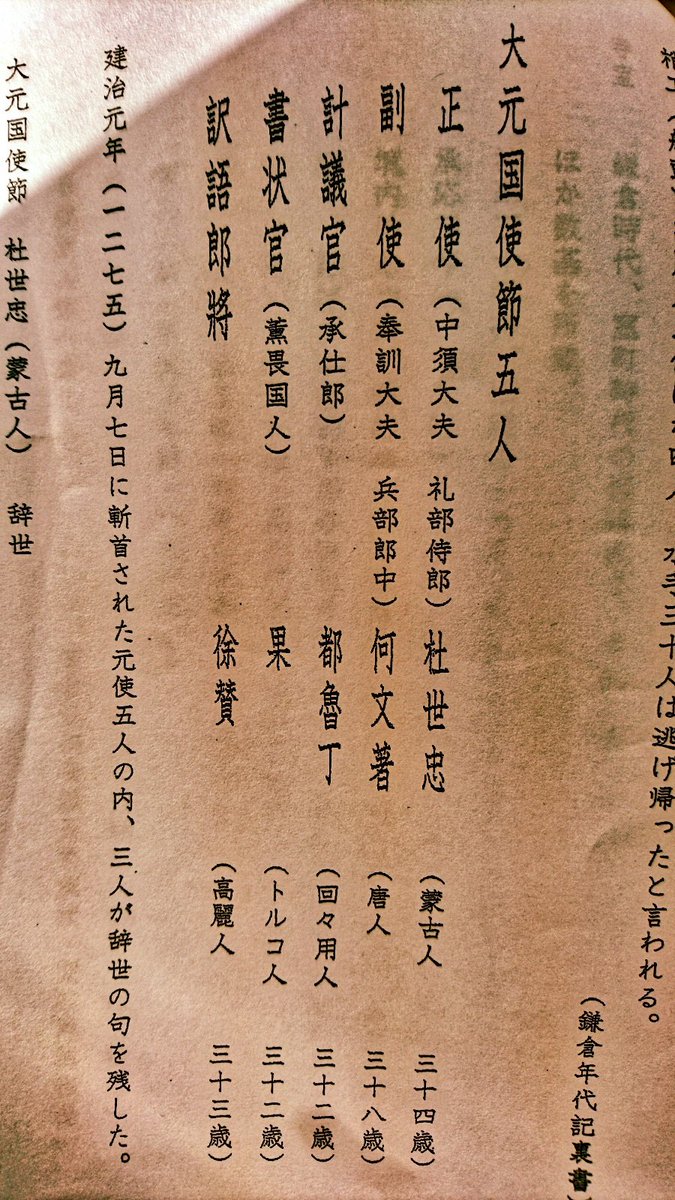 水手三十人は逃げ帰ったと言われる。
(鎌倉年代記裏書)
大元国使節五人
正使(中須大夫 礼部侍郎)杜世忠(蒙古人 三十四歳)
副使(奉訓大夫 兵部郎中)何文著(唐人 三十八歳)
計議官(承仕郎)都魯丁(回々用人 三十二歳)
書状官(薫畏国人)果(トルコ人 三十二歳)
訳語郎將 徐賛(高麗人 三十三歳)
建治元年(一二七五)九月七日に斬首された元使五人の内、三人が辞世の句を残した。
大元国使節 杜世忠(蒙古人) 辞世